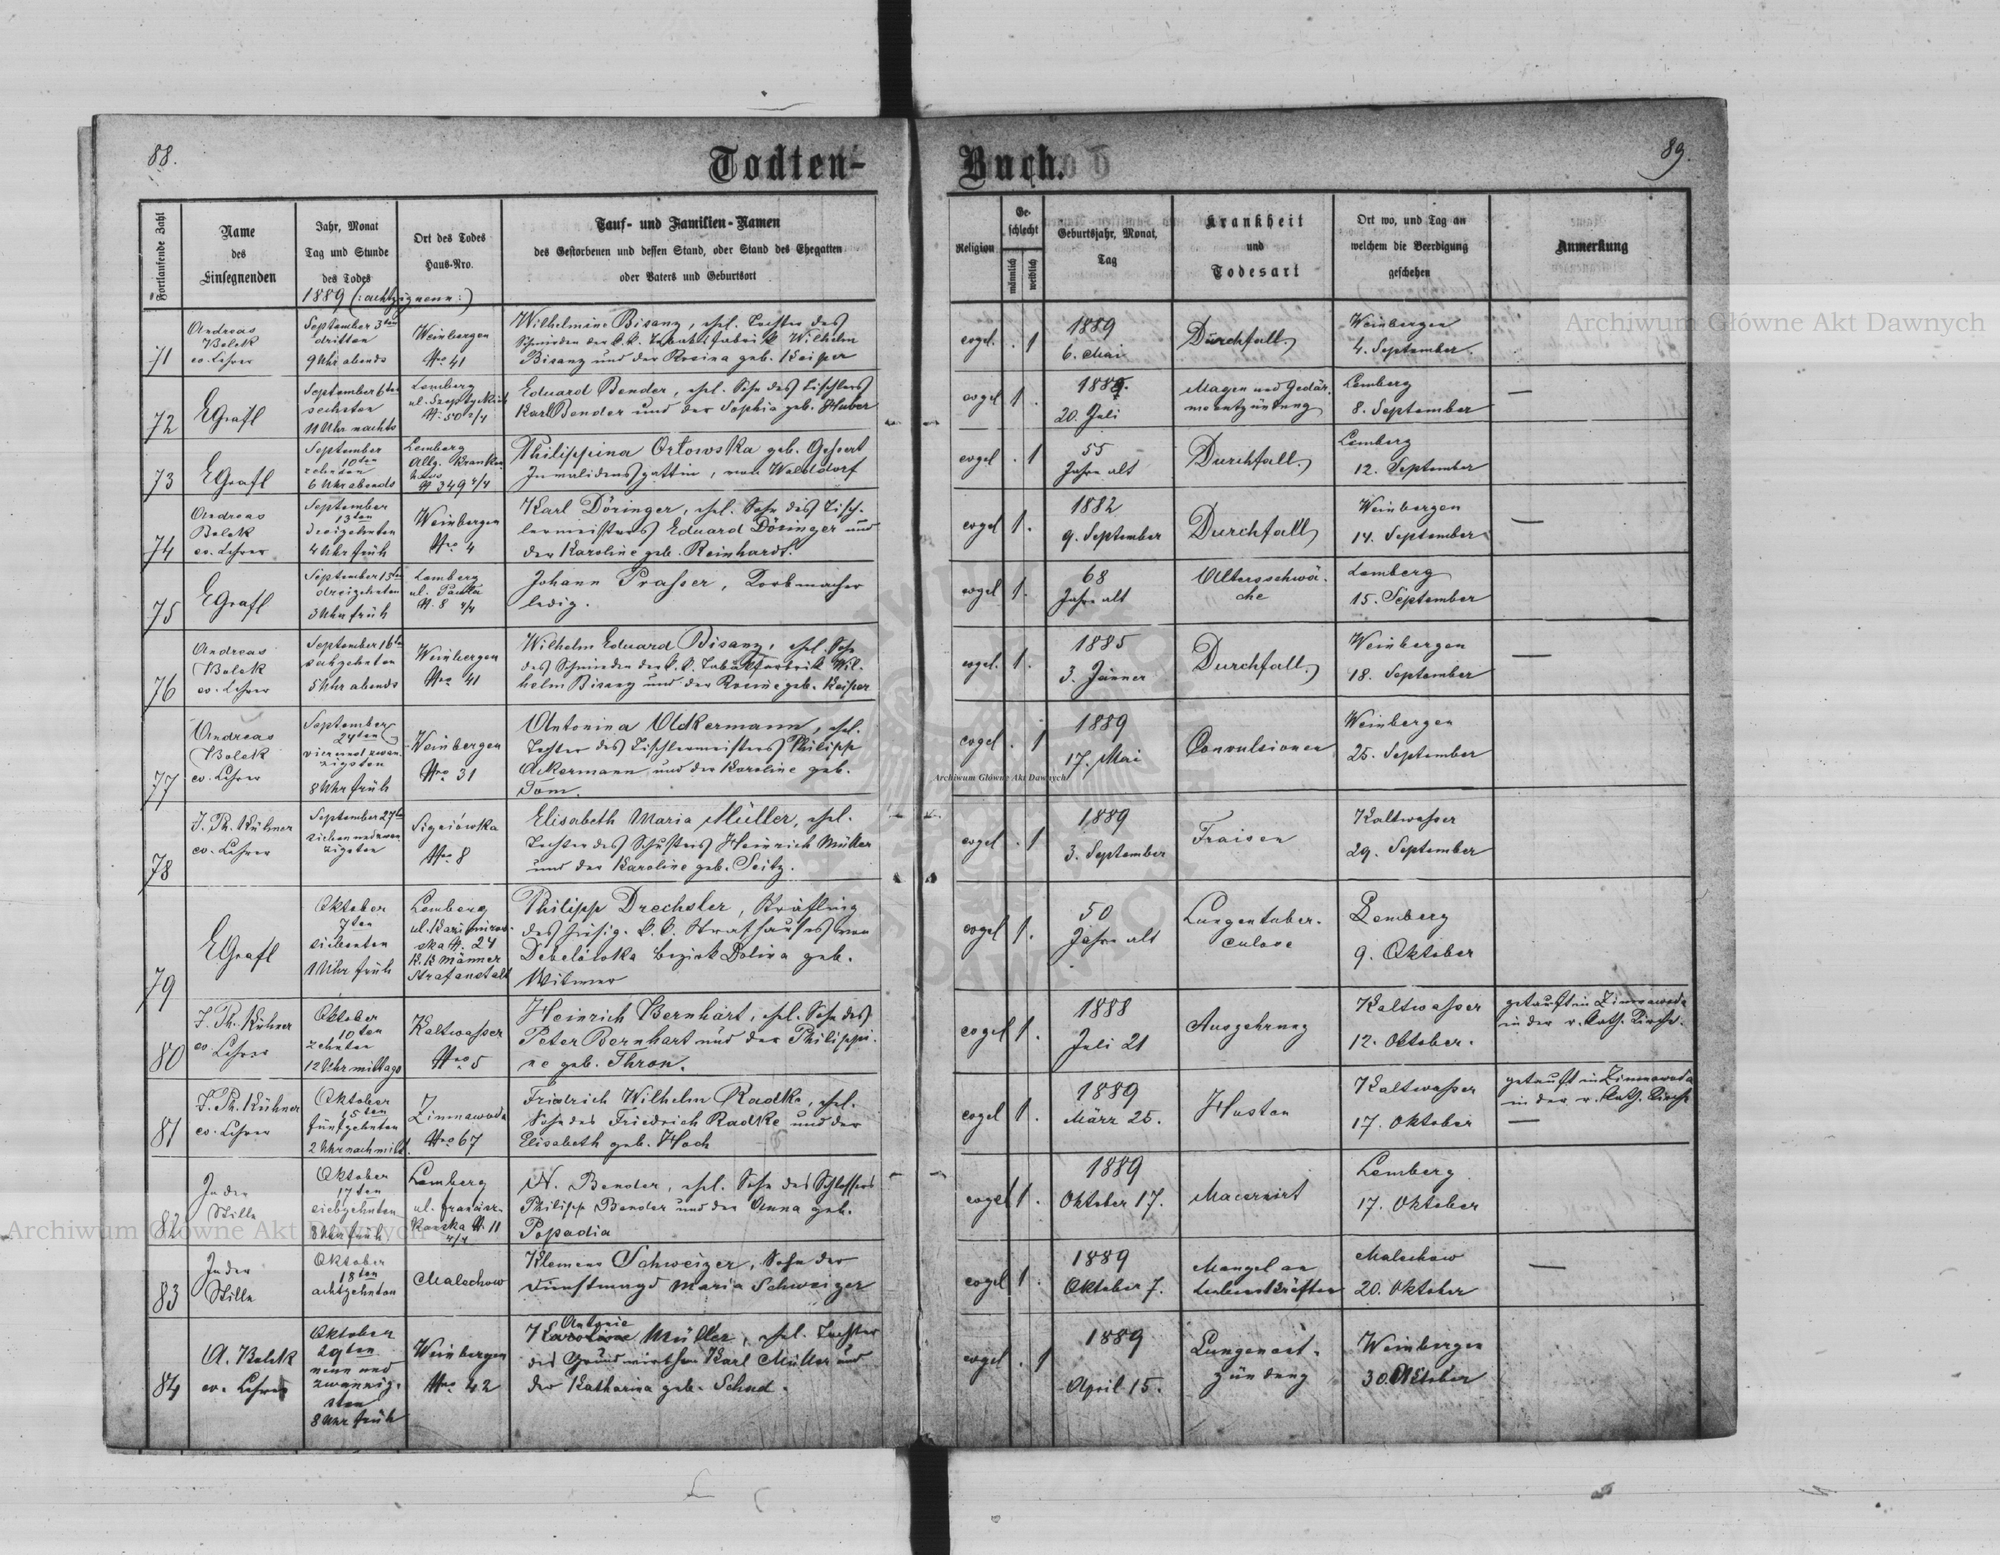 88.
Todten-
Buch.
89.
Fortlaufende Zahl
Name
des
Einsegnenden
Jahr, Monat
Tag und Stunde
des Todes
Ort des Todes
Haus-Nro.
Tauf- und Familien-Namen
des Gestorbenen und dessen Stand, oder Stand des Ehegatten
oder Vaters und Geburtsort
Religion
Ge-
schlecht
männlich
weiblich
Geburtsjahr, Monat,
Tag
Krankheit
und
Todesart
Ort wo, und Tag an
welchem die Beerdigung
geschehen
Anmerkung
1889 (: achtzigneun :)
71
Andreas
Bolek
ev. Lehrer
September 3ten
dritten
9 Uhr abends
Weinbergen
Nro 41
Wilhelmine Bisanz, ehel. Tochter des
Schmieden der k.k. Tabakfabrik Wilhelm
Bisanz und der Rosina geb. Keiper
evgel.
. 1
1889
6. Mai
Durchfall
Weinbergen
4. September
72
EGrafl
September 6ten
sechsten
11 Uhr nachts
Lemberg
N. 50 2/4
Eduard Bender, ehel. Sohn des Tischlers
Karl Bender und der Sophia geb. Huber
evgel
1 .
20. Juli
Magen und Gedär-
mentzündung
Lemberg
8. September
—
73
EGrafl
September
10ten
zehnten
6 Uhr abends
Lemberg
Allg. Kranken
haus
N 349 4/4
Philippina Orłowska geb. Gehert
Invalidensgattin, von Walddorf
evgel
. 1
55
Jahre alt
Durchfall
Lemberg
12. September
74
Andreas
Bolek
ev. Lehrer
September
13ten
dreizehnten
4 Uhr früh
Weinbergen
Nro 4
Karl Döringer, ehel. Sohn des Tisch-
lermeisters Eduard Döringer und
der Karoline geb. Reinhardt.
evgel
1 .
1882
9. September
Durchfall
Weinbergen
14. September
—
75
EGrafl
September 13ten
dreizehnten
3 Uhr früh
Lemberg
N. 8 4/4
Johann Prasser, Korbmacher
ledig.
evgel
1 .
68
Jahre alt
Altersschwä-
che
Lemberg
15. September
76
Andreas
Bolek
ev. Lehrer
September 16ten
sechzehnten
5 Uhr abends
Weinbergen
Nro 41
Wilhelm Eduard Bisanz, ehel. Sohn
des Schmieden der k.k. Tabakfabrik Wil-
helm Bisanz und der Rosine geb. Keiper
evgel.
1 .
1885
3. Jänner
Durchfall
Weinbergen
18. September
—
77
Andreas
Bolek
ev. Lehrer
September
24ten
vierundzwan-
zigsten
8 Uhr früh
Weinbergen
Nro 31
Antonina Adkermann, ehel.
Tochter des Tischlermeisters Philipp
Ackermann und der Karoline geb.
Tom.
evgel
. 1
1889
17. Mai
Convulsionen
Weinbergen
25. September
78
J. Ph. Kühner
ev. Lehrer
September 27ten
siebenundzwan-
zigsten
Signiówka
Nro 8
Elisabeth Maria Müller, ehel.
Tochter des Schusters Heinrich Müller
und der Karoline geb. Seitz.
evgel
. 1
1889
3. September
Fraisen
Kaltwasser
29. September
79
EGrafl
Oktober
7ten
siebenten
1 Uhr früh
Lemberg
ul. Kazimirow-
ska N. 24
K.K männer
Strafanstalt
Philipp Drechsler, Sträfling
des hiesig. k.k. Strafhauses von
Debelówka bezirk Dolina geb.
Witmer
evgel
1 .
50
Jahre alt
Lungentuber-
culose
Lemberg
9. Oktober
80
J. Ph. Kühner
ev. Lehrer
Oktober
10ten
zehnten
12 Uhr mittags
Kaltwasser
Nro 5
Heinrich Bernhart, ehel. Sohn des
Peter Bernhart und der Philippi-
ne geb. Thron.
evgel
1 .
1888
Juli 21
Auszehrung
Kaltwasser
12. Oktober.
getauft in Zimnawoda
in der r. kath. Kirche.
81
J. Ph. Kühner
ev. Lehrer
Oktober
15ten
fünfzehnten
2 Uhr nachmitt.
Zimnawoda
Nro 67
Friedrich Wilhelm Radke, ehel.
Sohn des Friedrich Radke und der
Elisabeth geb. Hoch
evgel
1 .
1889
März 25.
Husten
Kaltwasser
17. Oktober
getauft in Zimnawoda
in der r. kath. Kirche
—
82
In der
Stille
Oktober
17ten
siebzehnten
8 Uhr früh
Lemberg
ul. francisz-
kanska N. 11
4/4
N. Bender, ehel. Sohn des Schlossers
Philipp Bender und der Anna geb.
Popadia
evgel
1 .
1889
Oktober 17.
Macerirt
Lemberg
17. Oktober
83
In der
Stille
Oktober
18ten
achtzehnten
Malechow
Klemens Schweizer, Sohn der
Dienstmagd Maria Schweizer
evgel
1 .
1889
Oktober 7.
Mangel an
Lebenskräften
Malechow
20. Oktober
—
84
A. Bolek
ev. Lehrer
Oktober
29ten
neun und
zwanzig-
sten
8 Uhr früh
Weinbergen
Nro 42
Antonie
Karoline Müller, ehel. Tochter
des Grundwirthen Karl Müller und
der Katharina geb. Schad.
evgel
. 1
1889
April 15.
Lungenent-
zündung
Weinbergen
30. Oktober
Archiwum Główne Akt Dawnych
Archiwum Główne Akt Dawnych
Archiwum Główne Akt Dawnych